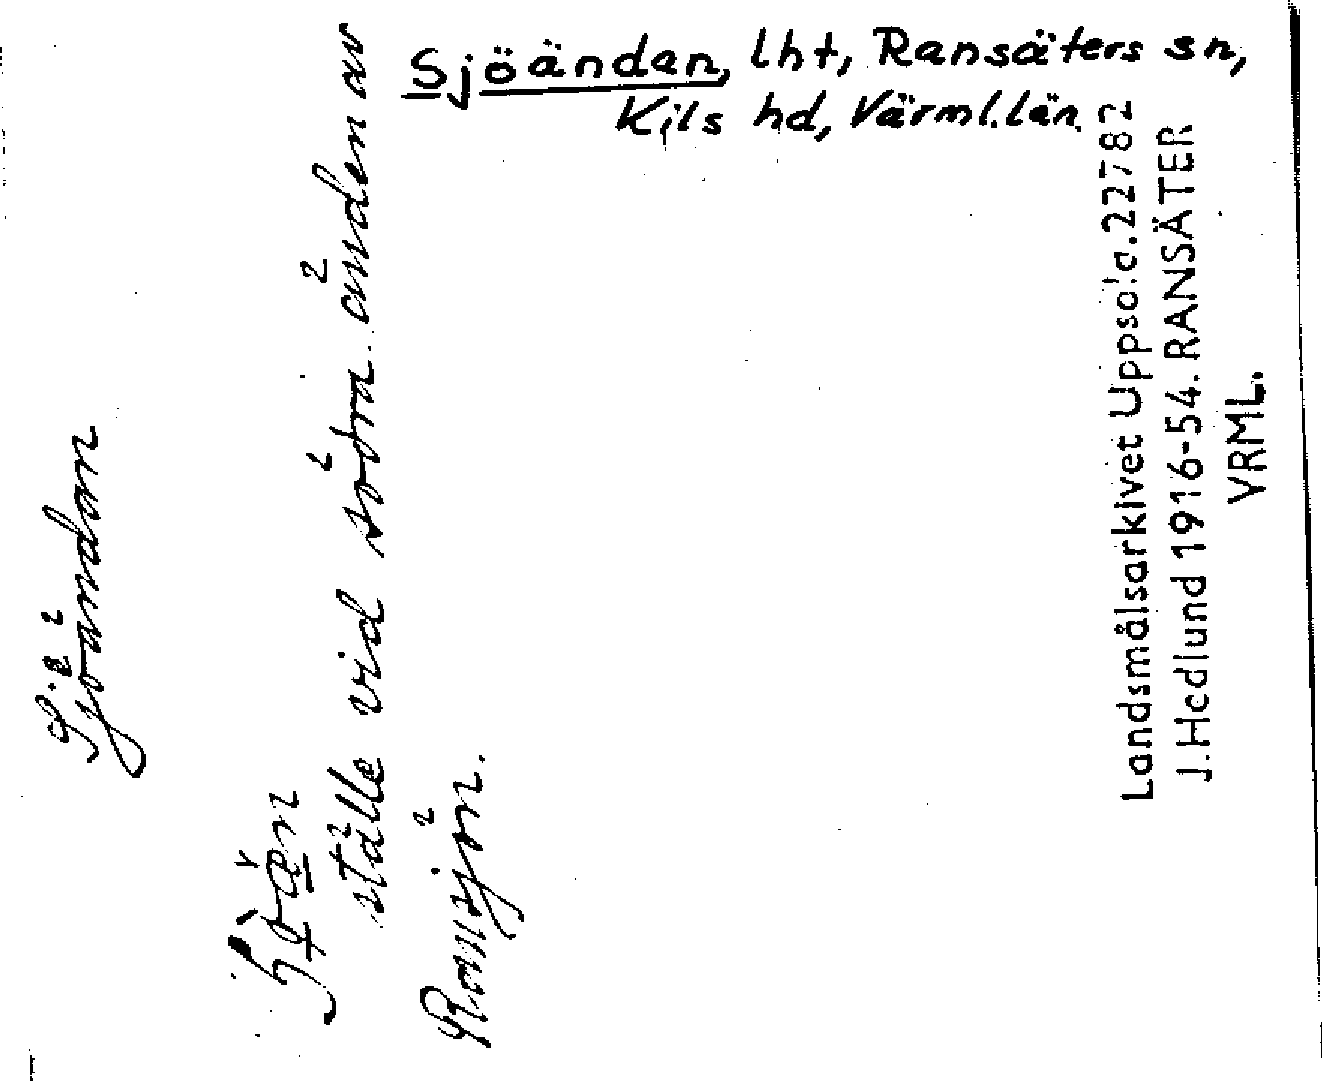 Sjöändan, lht, Ransäters sn,
Kils hd, Värml. län.
Sjöändan
ställe vid södra änden av
Ransjön.
Landsmålsarkivet Uppsala. 22782
J. Hedlund 1916-54. RANSÄTER
VRML.